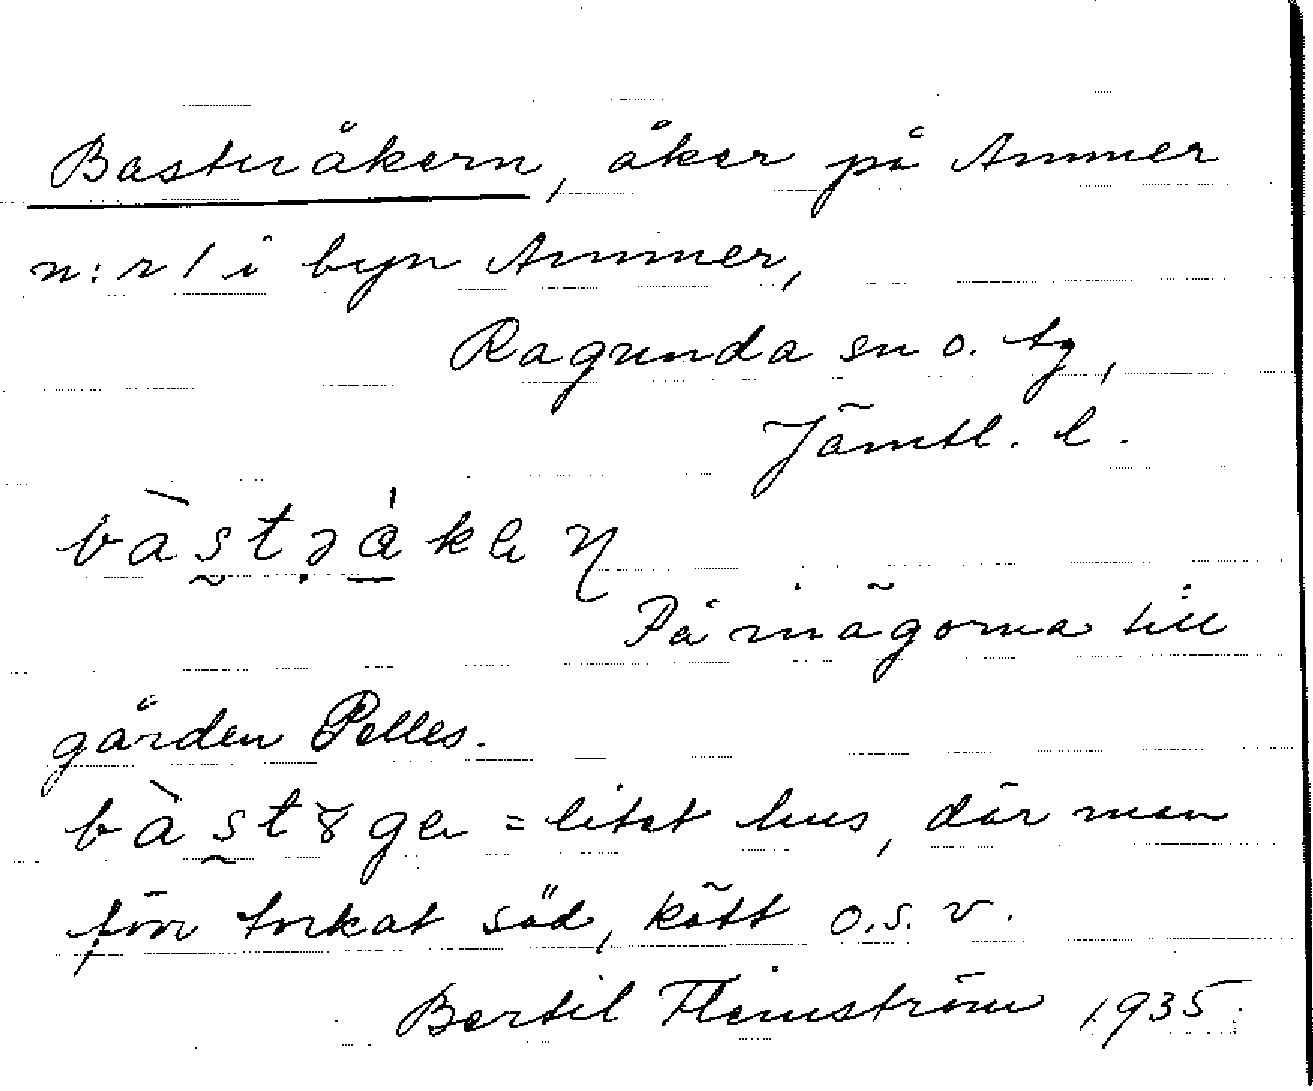 Bastuåkern, åker på Ammer
n:r 1 i byn Ammer,
Ragunda sn o. tg,
Jämtl. l.
På inägorna till
gården Pelles.
= litet hus, där man
förr torkat säd, kött o.s.v.
Bertil Flemström 1935.